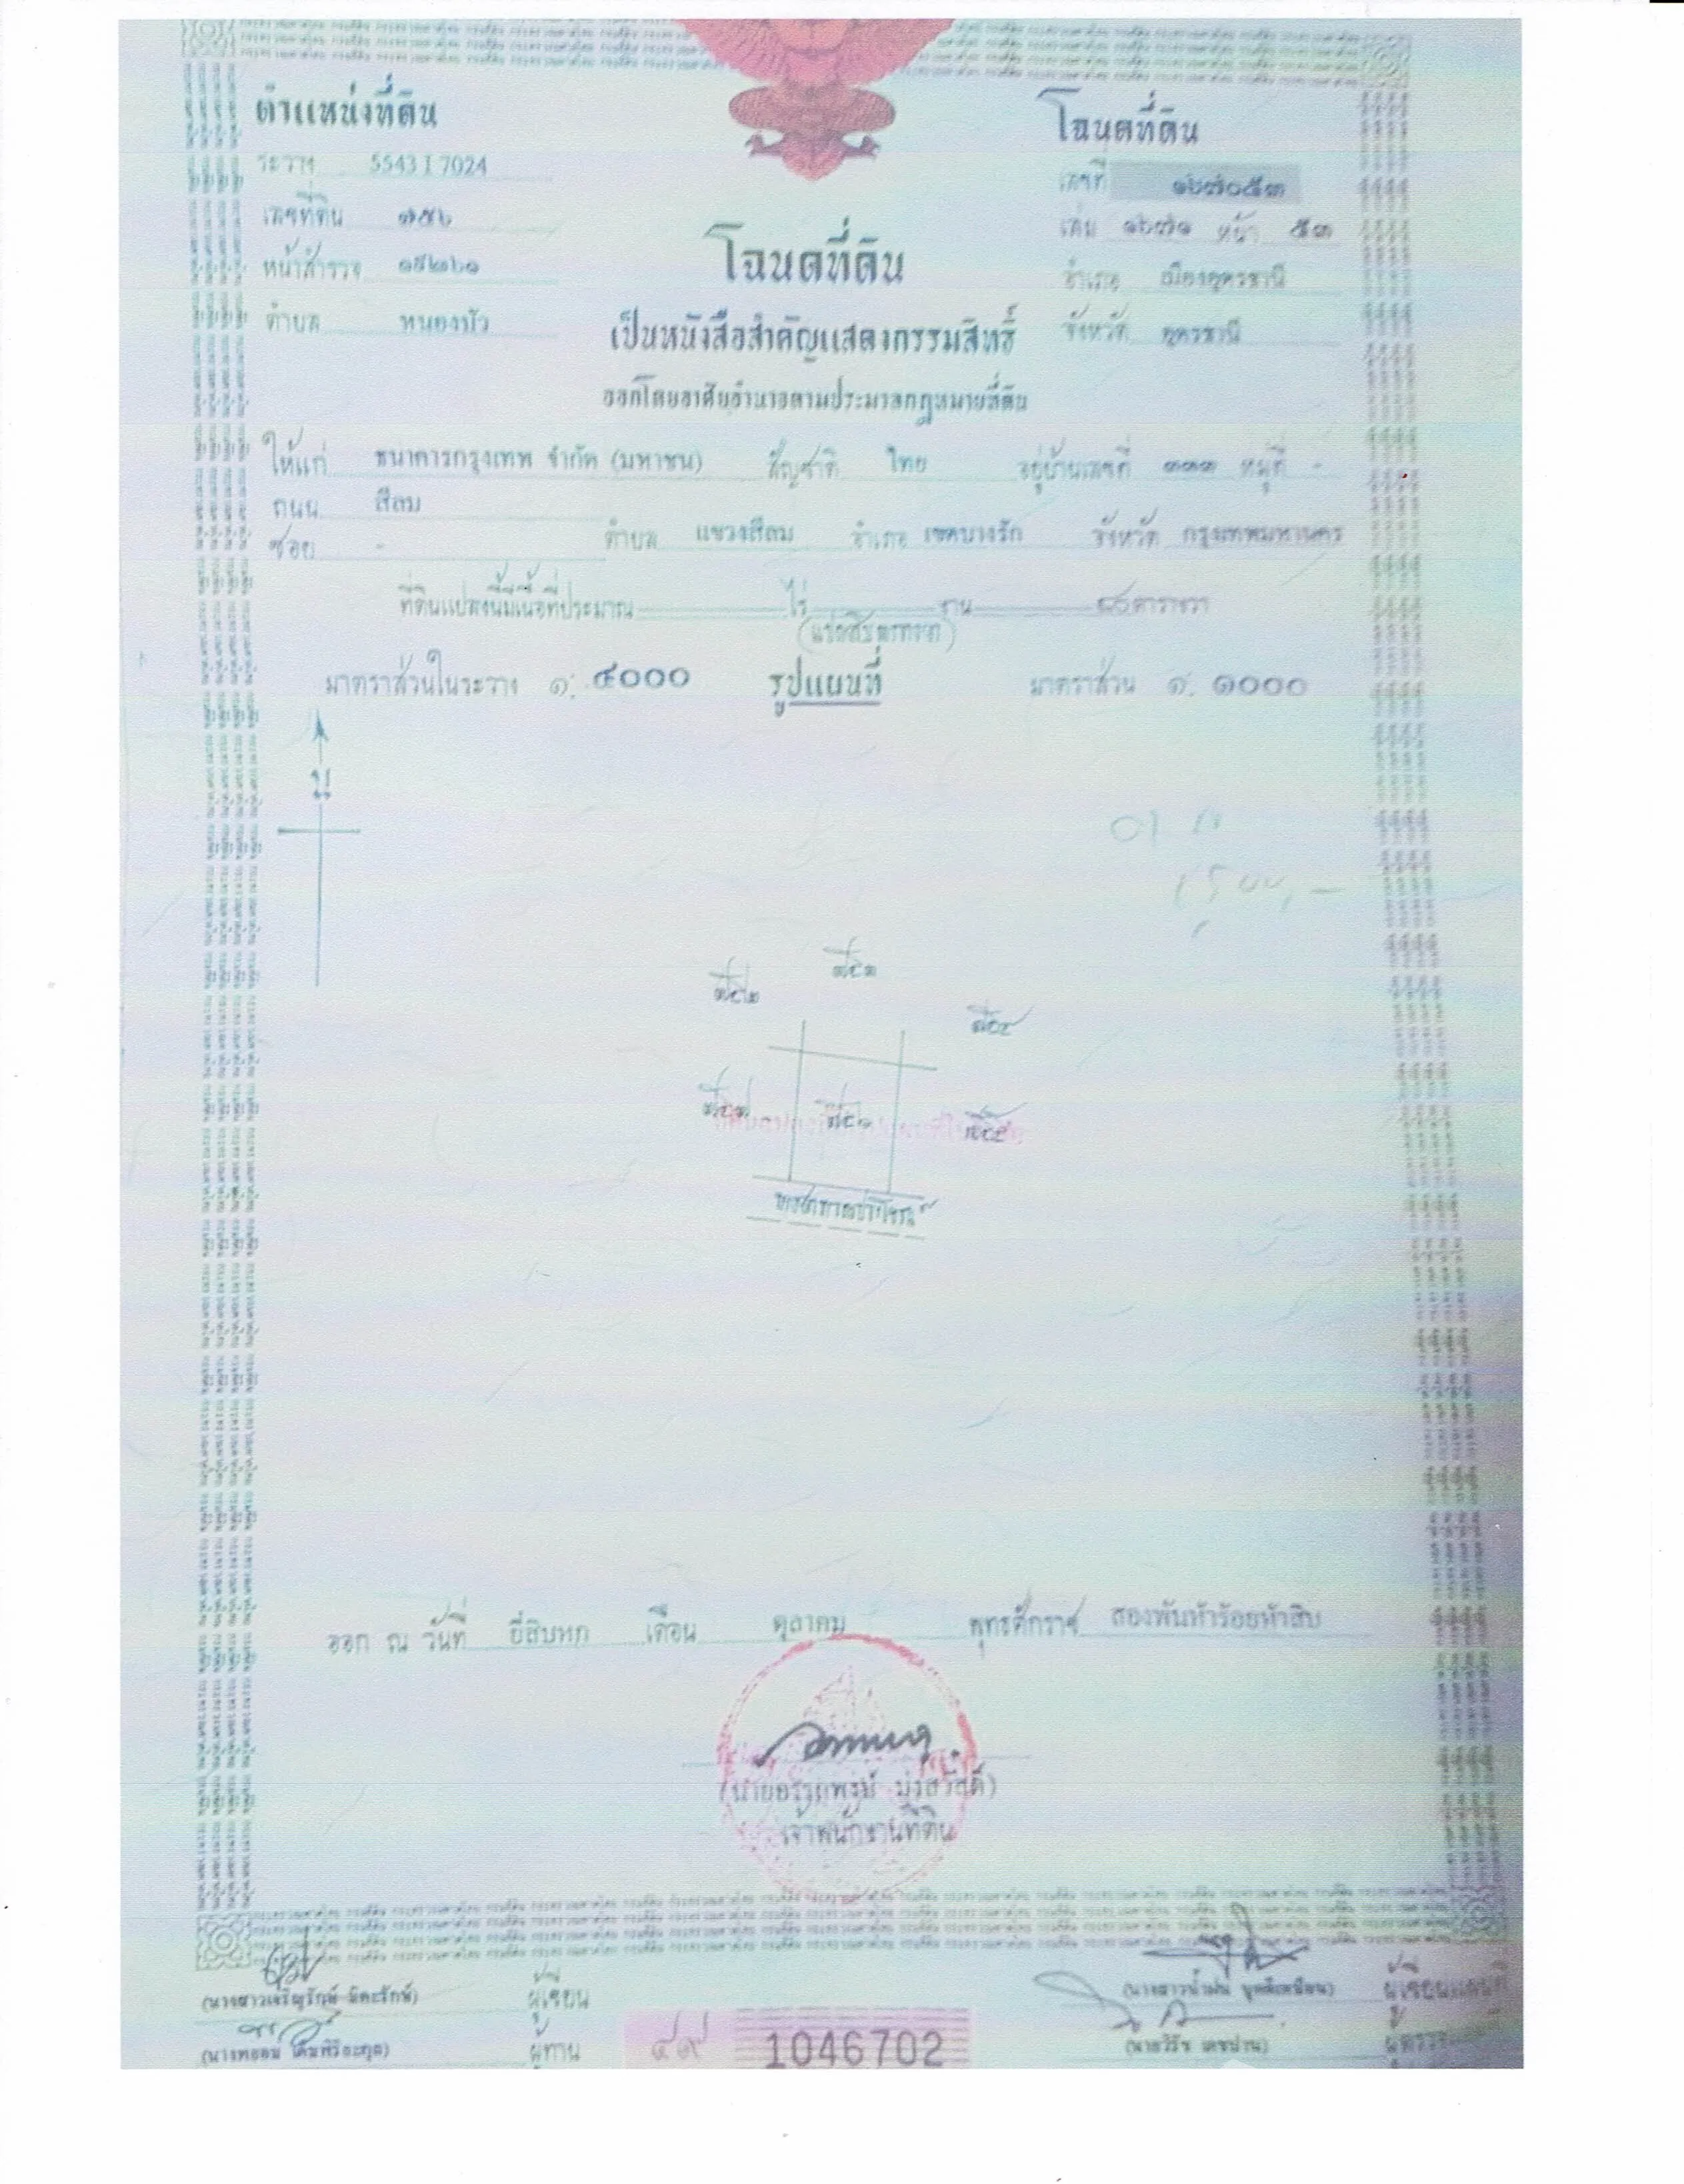 ตำแหน่งที่ดิน
ระวาง 5543 I 7024
เลขที่ดิน ๗๕๖
หน้าสำรวจ
ตำบล หนองบัว
โฉนดที่ดิน
เลขที่ ๑๖๗๐๕๓
เล่ม ๑๖๗๑ หน้า ๕๓
อำเภอ เมืองอุดรธานี
จังหวัด อุดรธานี
โฉนดที่ดิน
เป็นหนังสือสำคัญแสดงกรรมสิทธิ์
ออกโดยอาศัยอำนาจตามประมวลกฎหมายที่ดิน
ให้แก่ ธนาคารกรุงเทพ จำกัด (มหาชน) สัญชาติ ไทย อยู่บ้านเลขที่ ๓๓๓ หมู่ที่ -
ถนน สีลม
ซอย - ตำบล แขวงสีลม อำเภอ เขตบางรัก จังหวัด กรุงเทพมหานคร
ที่ดินแปลงนี้มีเนื้อที่ประมาณ ไร่ งาน ๘๐ ตารางวา
(แปดสิบตารางวา)
มาตราส่วนในระวาง ๑: ๔๐๐๐ รูปแผนที่ มาตราส่วน ๑: ๑๐๐๐
น
ทางสาธารณประโยชน์
ออก ณ วันที่ ยี่สิบหก เดือน ตุลาคม พุทธศักราช สองพันห้าร้อยห้าสิบ
เจ้าพนักงานที่ดิน
ผู้เขียน
ผู้เขียนแผนที่
ผู้ทาน
๔๙ 1046702
ผู้ตรวจ